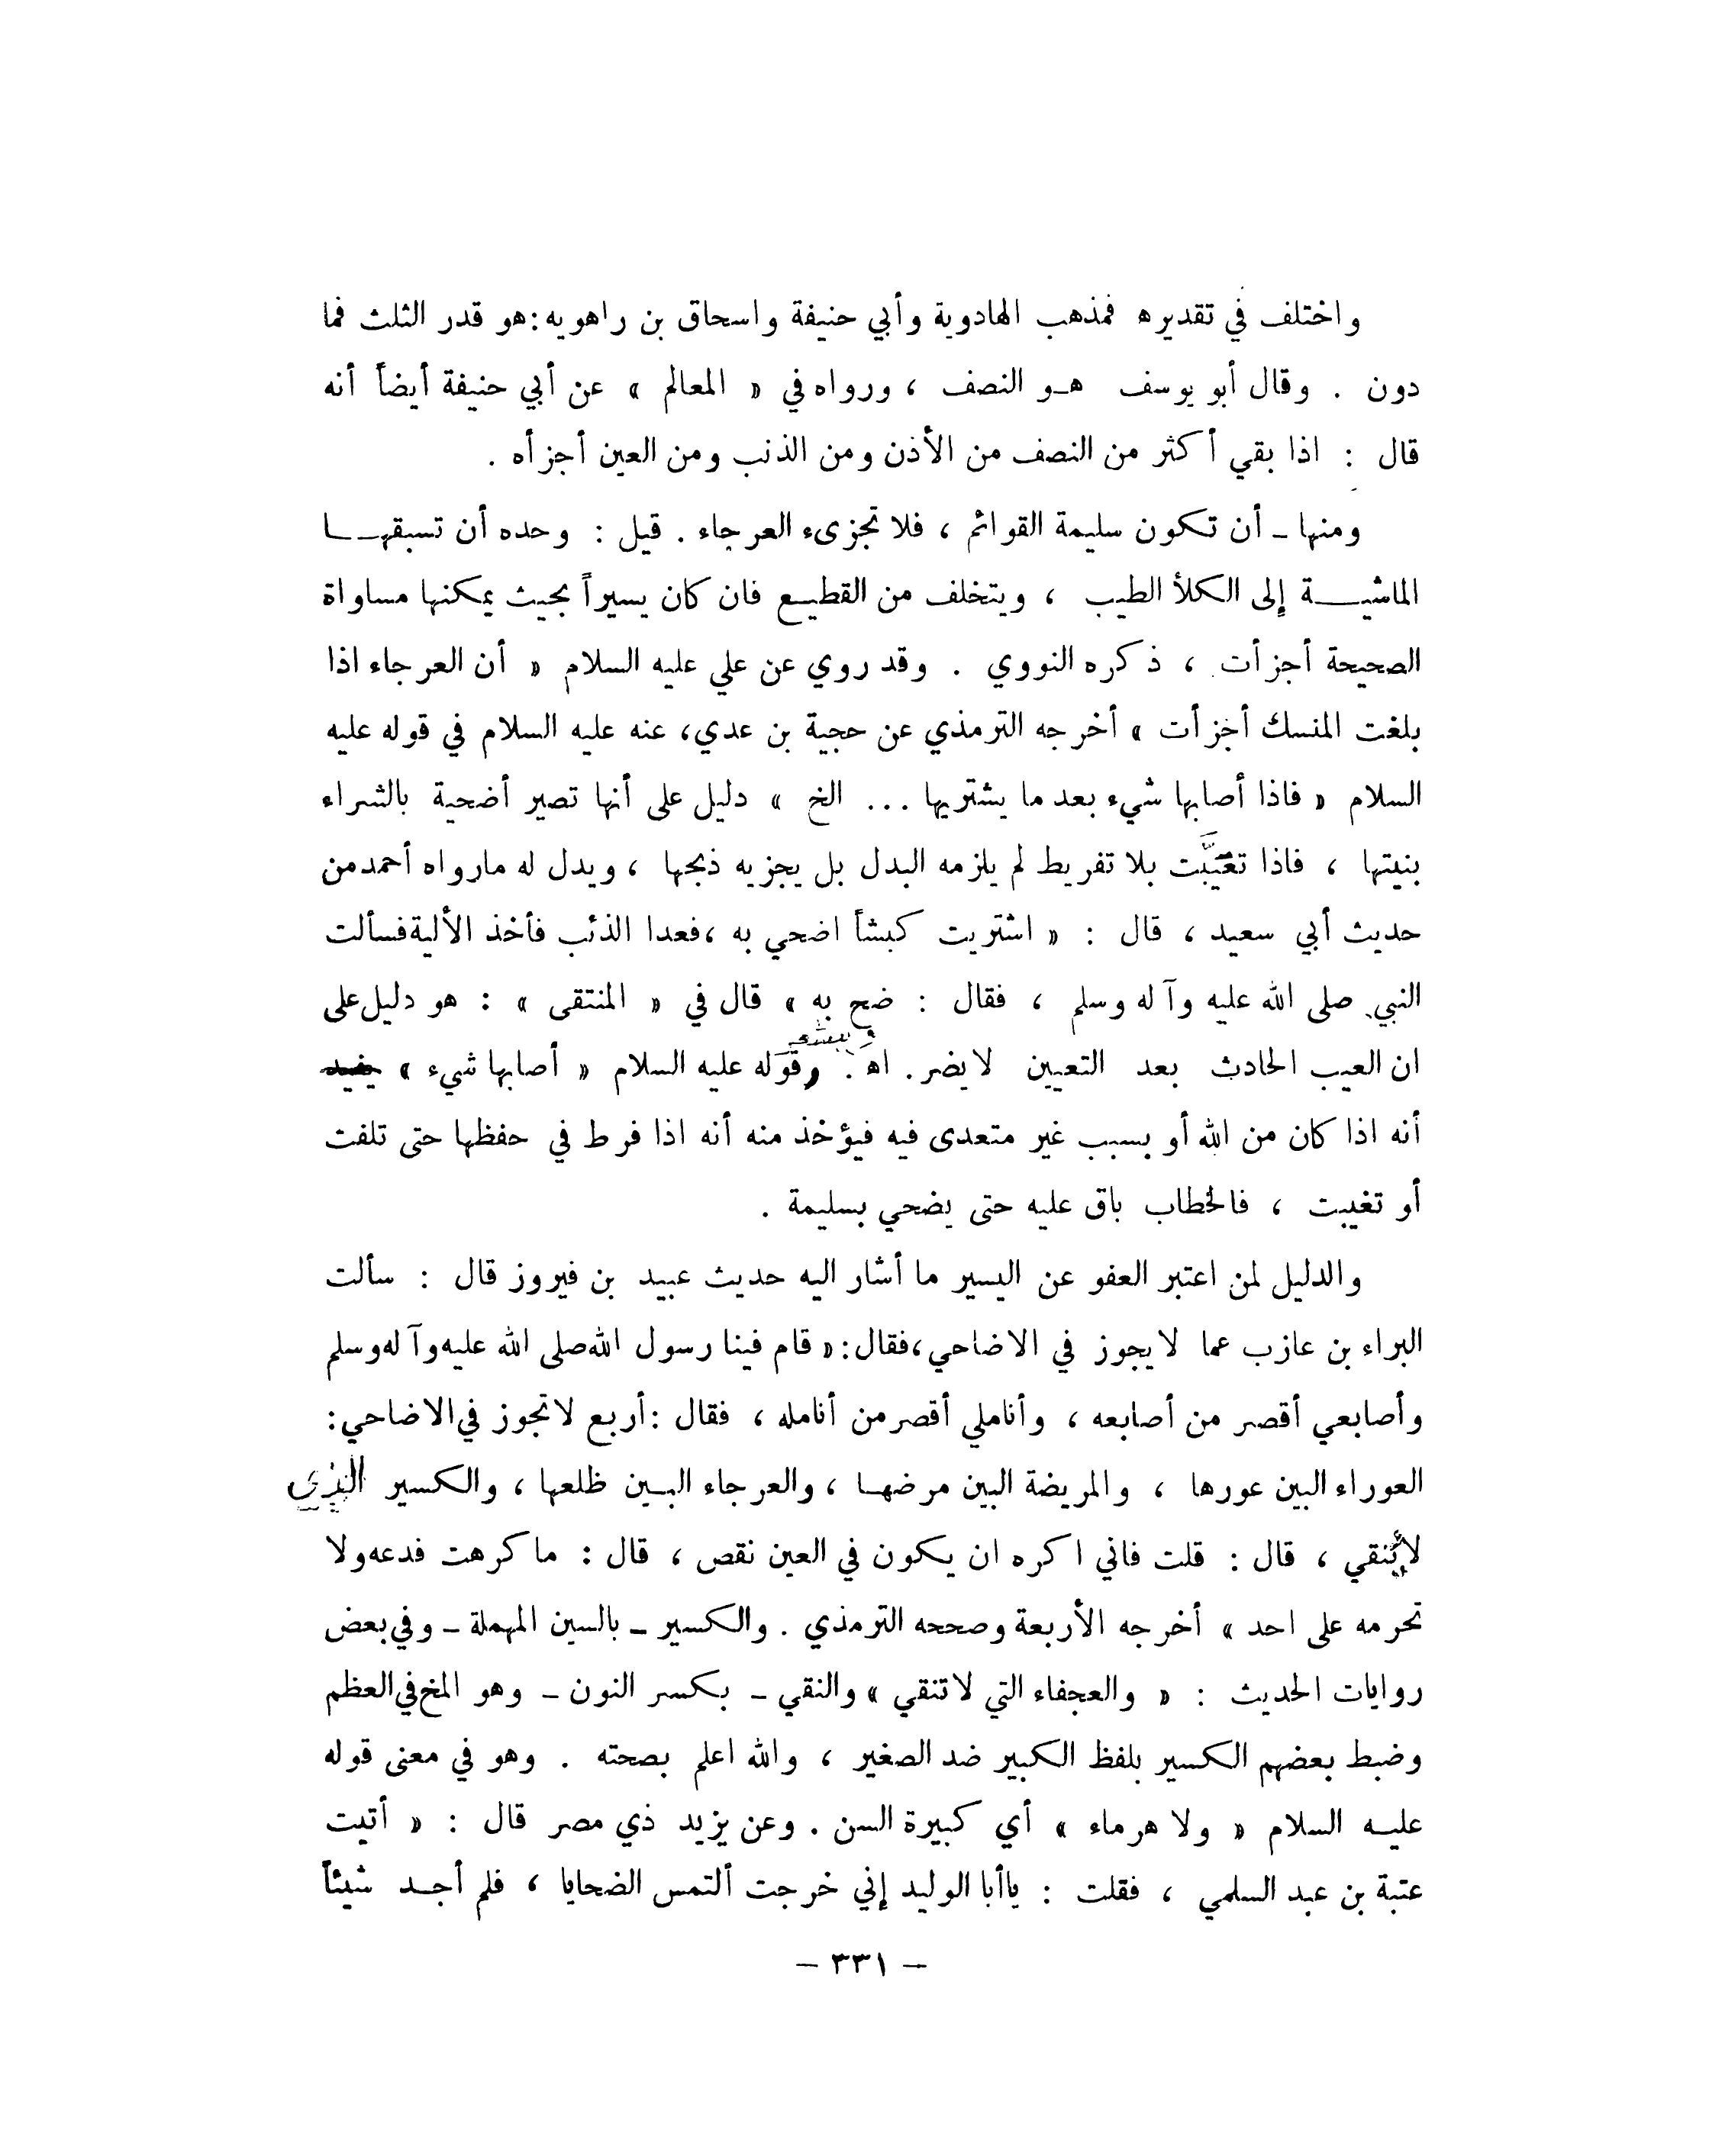 واختلف في تقديره فمذهب الهادوية وأبي حنيفة واسحاق بن راهويه:هو قدر الثلث فما
دون . وقال أبو يوسف هـو النصف ، ورواه في « المعالم » عن أبي حنيفة أيضاً أنه
قال : اذا بقي أكثر من النصف من الأذن ومن الذنب ومن العين أجزأه .
ومنها ــ أن تكون سليمة القوائم ، فلا تجزىء العرجاء . قيل : وحده أن تسبقهــا
الماشيــة إلى الكلأ الطيب ، ويتخلف من القطيـع فان كان يسيراً بحيث يمكنها مساواة
الصحيحة أجزأت ، ذكره النووي . وقد روي عن علي عليه السلام « أن العرجاء اذا
بلغت المنسك أجزأت » أخرجه الترمذي عن حجية بن عدي، عنه عليه السلام في قوله عليه
السلام « فاذا أصابها شيء بعد ما يشتريها ... الخ » دليل على أنها تصير أضحية بالشراء
بنيتها ، فاذا تعيَّبت بلا تفريط لم يلزمه البدل بل يجزيه ذبحها ، ويدل له مارواه أحمدمن
حديث أبي سعيد ، قال : « اشتريت كبشاً اضحي به ،فعدا الذئب فأخذ الأليةفسألت
النبي صلى الله عليه وآله وسلم ، فقال : ضح به » قال في « المنتقى » : هو دليل على
ان العيب الحادث بعد التعيين لايضر. اه . وقوله عليه السلام « أصابها شيء » يفيد
أنه اذا كان من الله أو بسبب غير متعدى فيه فيؤخذ منه أنه اذا فرط في حفظها حتى تلفت
أو تغيبت ، فالخطاب باق عليه حتى يضحي بسليمة .
والدليل لمن اعتبر العفو عن اليسير ما أشار اليه حديث عبيد بن فيروز قال : سألت
البراء بن عازب عما لايجوز في الاضاحي،فقال:« قام فينا رسول الله صلى الله عليه وآله وسلم
وأصابعي أقصر من أصابعه ، وأناملي أقصرمن أنامله ، فقال :أربع لاتجوز في الاضاحي:
العوراء البين عورها ، والمريضة البين مرضهـا ، والعرجاء البـين ظلعها ، والكسير الذي
لاينقي ، قال : قلت فاني اكره ان يكون في العين نقص ، قال : ماكرهت فدعه ولا
تحرمه على احد » أخرجه الأربعة وصححه الترمذي . والكسير ــ بالسين المهملة ــ وفي بعض
روايات الحديث : « والعجفاء التي لاتنقي » والنقي ــ بكسر النون ــ وهو المخ في العظم
وضبط بعضهم الكسير بلفظ الكبير ضد الصغير ، والله اعلم بصحته . وهو في معنى قوله
عليـه السلام « ولا هرماء » أي كبيرة السن . وعن يزيد ذي مصر قال : « أتيت
عتبة بن عبد السلمي ، فقلت : ياأبا الوليد إني خرجت ألتمس الضحايا ، فلم أجـد شيئاً
– ٣٣١ –